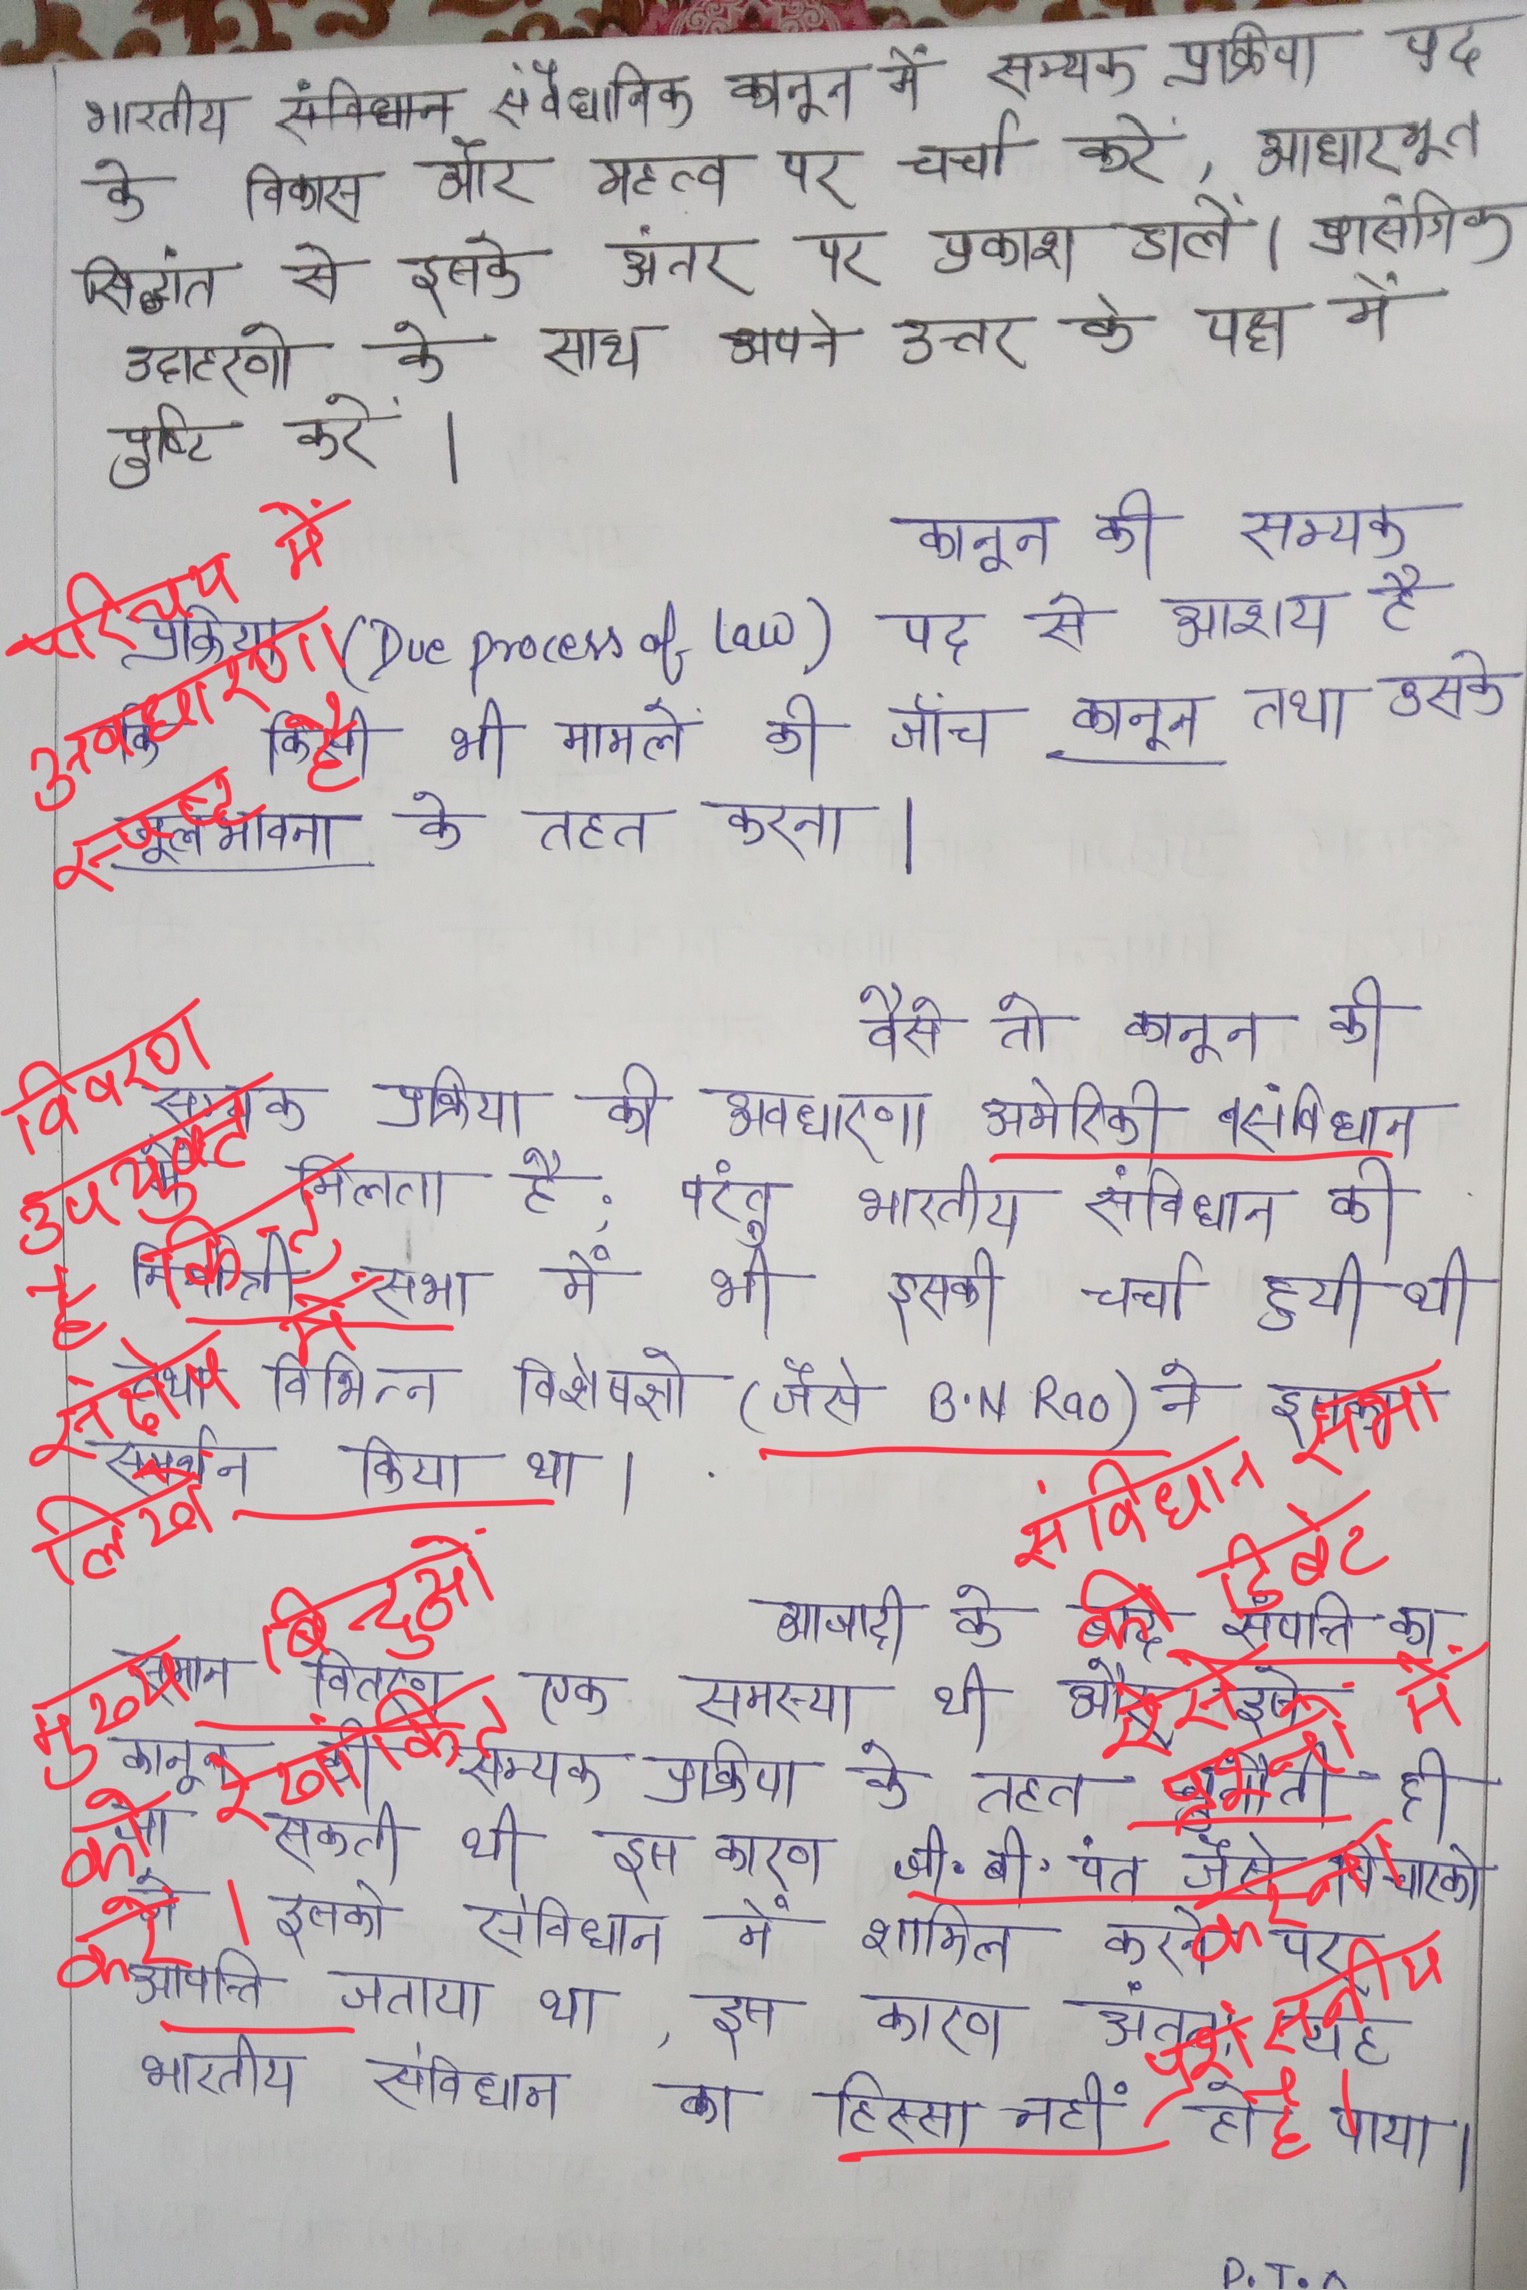 भारतीय संविधान संवैधानिक कानून में सम्यक प्रक्रिया पद
के विकास और महत्व पर चर्चा करें, आधारभूत
सिद्धांत से इसके अंतर पर प्रकाश डालें। प्रासंगिक
उदाहरणो के साथ अपने उत्तर के पक्ष में
पुष्टि करें।
कानून की सम्यक
प्रक्रिया (Due process of law) पद से आशय है
कि किसी भी मामलें की जाँच कानून तथा उसके
मूल भावना के तहत करना।
परिचय में
अवधारणा
स्पष्ट है
वैसे तो कानून की
सम्यक प्रक्रिया की अवधारणा अमेरिकी संविधान
में मिलता है; परंतु भारतीय संविधान की
निर्मात्री सभा में भी इसकी चर्चा हुयी थी
तथा विभिन्न विशेषज्ञो (जैसे B.N Rao) ने इसका
समर्थन किया था।
विवरण
उपयुक्त
है किंतु
संक्षेप में
लिखें
आजादी के बाद संपत्ति का
समान वितरण एक समस्या थी और इसे
कानून की सम्यक प्रक्रिया के तहत चुनौती दी
जा सकती थी इस कारण जी. बी. पंत जैसे विचारको
ने इसको संविधान में शामिल करने पर
आपत्ति जताया था, इस कारण अंततः यह
भारतीय संविधान का हिस्सा नहीं हो पाया।
मुख्य बिन्दुओं
को रेखांकित
करें।
संविधान सभा
की डिबेट
में
करना
प्रशंसनीय
है।
P.T.O